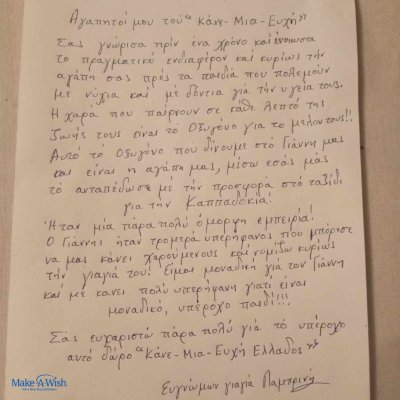 Αγαπητοί μου τού "Κάνε-Μια-Ευχή"
Σας γνώρισα πρίν ένα χρόνο και ένοιωσα
το πραγματικό ενδιαφέρον και κυρίως τήν
αγάπη σας πρός τα παιδιά που πολεμούν
μέ νύχια καί μέ δόντια γιά τήν υγεία τους.
Η χαρά που παίρνουν σε κάθε λεπτό της
ζωής τους είναι το Οξυγόνο για το μέλλον τους!!
Αυτό τό Οξυγόνο που δίνουμε στό Γιάννη μας
και είναι η αγάπη μας, μέσω εσάς μάς
τό ανταπέδωσε με τήν προσφορά στό ταξίδι
για τήν Καππαδοκία!
Ήταν μία πάρα πολύ όμορφη εμπειρία!
Ο Γιάννης ήταν τρομερά υπερήφανος που μπόρεσε
να μας κάνει χαρούμενους και νομίζω κυρίως
τήν γιαγιά του! Είμαι μοναδική γιά τον Γιάννη
και με κάνει πολύ υπερήφανη γιατί είναι
μοναδικό, υπέροχο παιδί!!!
Σάς ευχαριστώ πάρα πολύ γιά τό υπέροχο
αυτό δώρο "Κάνε-Μια-Ευχή Ελλάδος"
Ευγνώμων γιαγιά Λαμπρινή
Make-A-Wish